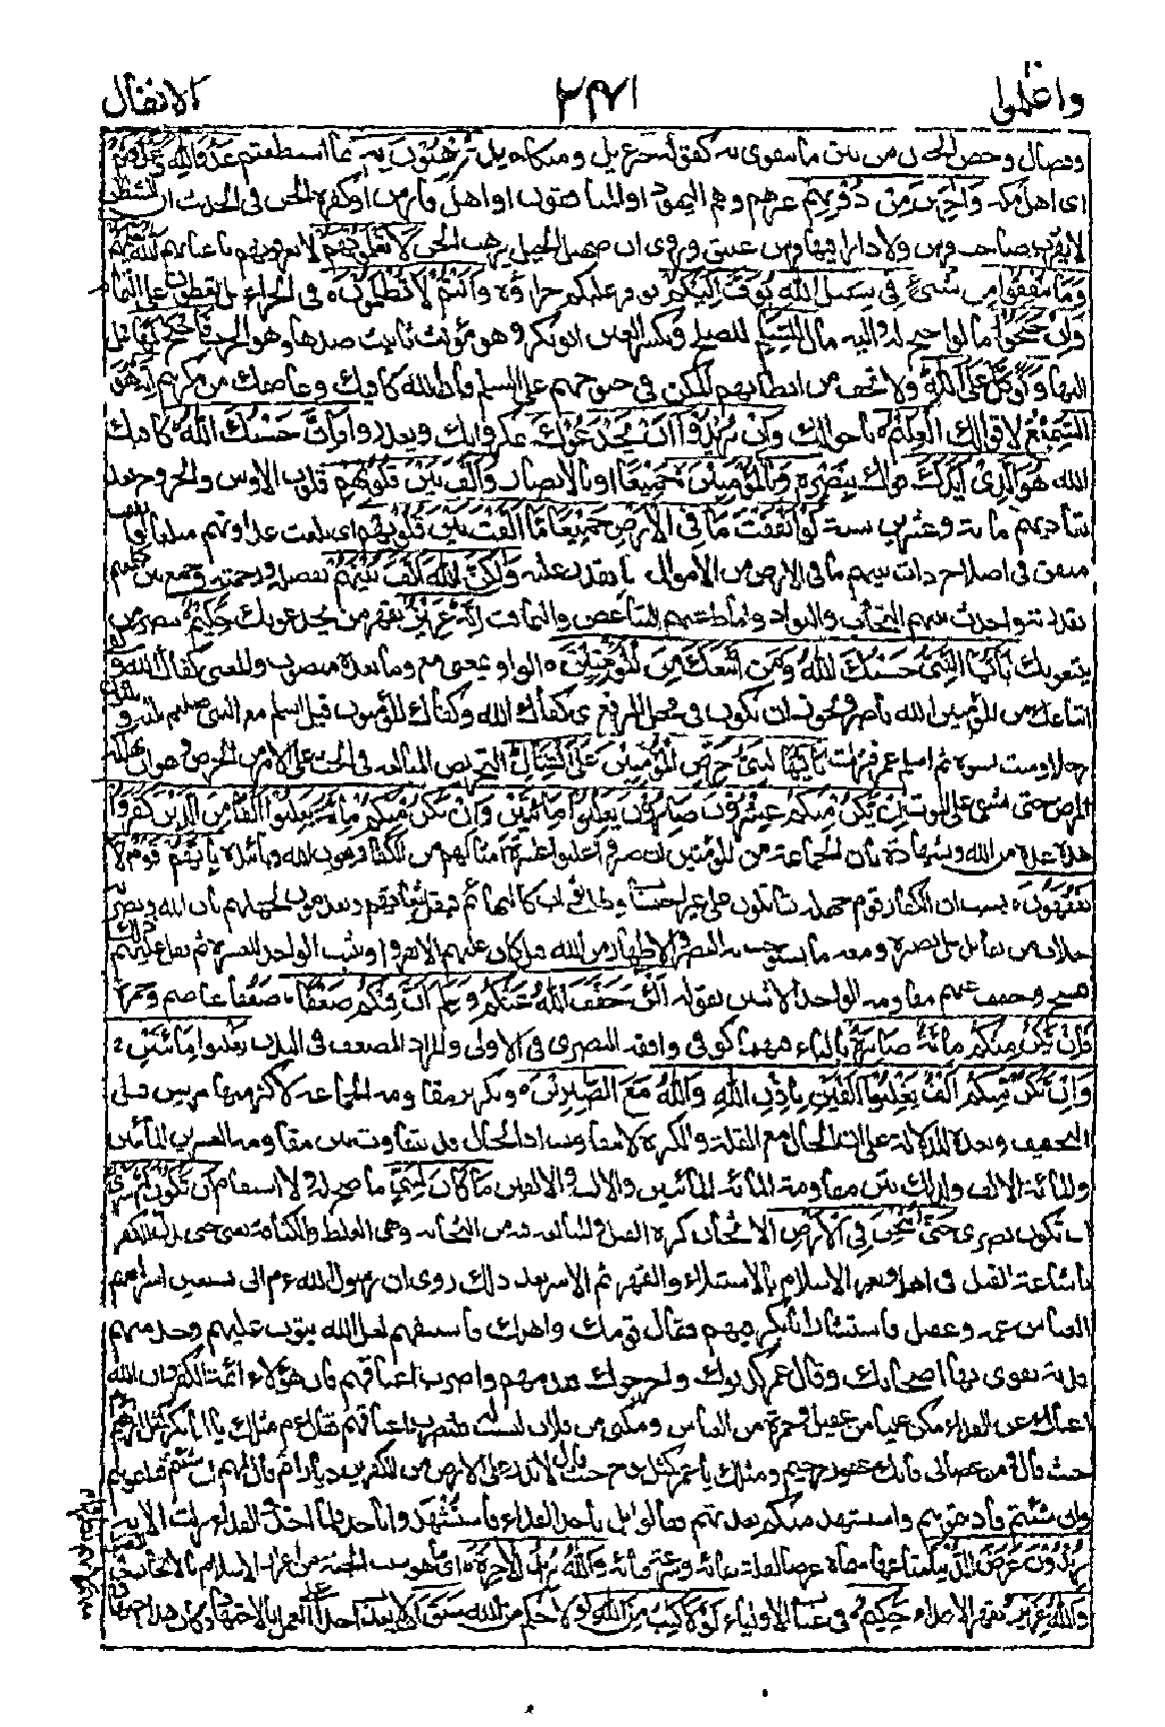 واعلموا ٢٤١ الانفال
وخص الخيل من بين ما يتقوى به كقوله جبريل وميكاءيل تُرْهِبُوْنَ بِهٖ بما استطعتم عَدُوَّ اللهِ وَعَدُوَّكُمْ
اى اهل مكة وَاٰخَرِيْنَ مِنْ دُوْنِهِمْ غيرهم وهم اليهود او المنافقون او اهل فارس او كفرة الجن فى الحديث ان الشيطان
لا يقرب صاحب فرس ولا دارا فيها فرس عتيق وروى ان صهيل الخيل يرهب الجن لَا تَعْلَمُوْنَهُمْ لا تعرفونهم باعيانهم اَللهُ يَعْلَمُهُمْ
وَمَا تُنْفِقُوْا مِنْ شَيْءٍ فِيْ سَبِيْلِ اللهِ يُوَفَّ اِلَيْكُمْ يوفر عليكم جزاؤه وَاَنْتُمْ لَا تُظْلَمُوْنَ فى الجزاء بل تعطون على التمام
وَاِنْ جَنَحُوْا مالوا جنح له واليه مال لِلسَّلْمِ للصلح وبكسر السين ابو بكر وهو مؤنث تانيث ضدها وهو الحرب فَاجْنَحْ لَهَا فمل
اليها وَتَوَكَّلْ عَلَى اللهِ ولا تخف من ابطانهم المكر فى جنوحهم على السلم فان الله كافيك وعاصمك من مكرهم اِنَّهٗ هُوَ
السَّمِيْعُ لاقوالك الْعَلِيْمُ باحوالك وَاِنْ يُّرِيْدُوْا اَنْ يَّخْدَعُوْكَ يمكروا بك ويغدروا فَاِنَّ حَسْبَكَ اللهُ كافيك
الله هُوَ الَّذِيْ اَيَّدَكَ قواك بِنَصْرِهٖ وَبِالْمُؤْمِنِيْنَ جميعا او بالانصار وَاَلَّفَ بَيْنَ قُلُوْبِهِمْ قلوب الاوس والخزرج بعد
تعاديهم مائة وعشرين سنة لَوْ اَنْفَقْتَ مَا فِى الْاَرْضِ جَمِيْعًا مَّا اَلَّفْتَ بَيْنَ قُلُوْبِهِمْ اى بلغت عداوتهم مبلغا لو انفق
منفق فى اصلاح ذات بينهم ما فى الارض من الاموال لم يقدر عليه وَلٰكِنَّ اللهَ اَلَّفَ بَيْنَهُمْ بفضله ورحمته وجمع بين كلمتهم
بقدرته واحدث بينهم التحاب والتواد واماط عنهم التباغض والتماقت اِنَّهٗ عَزِيْزٌ يقهر من يخدعونك حَكِيْمٌ ينصر من
يتبعونك يٰاَيُّهَا النَّبِيُّ حَسْبُكَ اللهُ وَمَنِ اتَّبَعَكَ مِنَ الْمُؤْمِنِيْنَ الواو بمعنى مع وما بعده منصوب والمعنى كفاك الله وكفى
اتباعك من المؤمنين الله ناصرا ويجوز ان يكون فى محل الرفع اى كفاك الله وكفاك المؤمنون قيل اسلم مع النبى صلعم ثلثة وثلثون
رجلا وست نسوة ثم اسلم عمر فنزلت يٰاَيُّهَا النَّبِيُّ حَرِّضِ الْمُؤْمِنِيْنَ عَلَى الْقِتَالِ التحريض المبالغة فى الحث على الامر من الحرض وهو ان ينهكه
المرض حتى يشفى على الموت اِنْ يَّكُنْ مِّنْكُمْ عِشْرُوْنَ صَابِرُوْنَ يَغْلِبُوْا مِائَتَيْنِ وَاِنْ يَّكُنْ مِّنْكُمْ مِّائَةٌ يَّغْلِبُوْا اَلْفًا مِّنَ الَّذِيْنَ كَفَرُوْا
هذه عدة من الله وبشارة بان الجماعة من المؤمنين ان صبروا غلبوا عشرة امثالهم من الكفار بعون الله وتائيده بِاَنَّهُمْ قَوْمٌ لَّا
يَفْقَهُوْنَ بسبب ان الكفار قوم جهلة يقاتلون على غير احتساب وطلب ثواب كالبهائم فيقل ثباتهم ويعدمون لجهلهم بالله ونصرته
خلاف من يقاتل على بصيرة ومعه ما يستوجب به النصر والاظهار من الله قيل كان عليهم ان لا يفروا ويثبت الواحد للعشرة ثم ثقل عليهم ذلك
فنسخ وخفف عنهم بمقاومة الواحد الاثنين بقوله اَلْـٰٔنَ خَفَّفَ اللهُ عَنْكُمْ وَعَلِمَ اَنَّ فِيْكُمْ ضَعْفًا ضعفا عاصم وحمزة
فَاِنْ يَّكُنْ مِّنْكُمْ مِّائَةٌ صَابِرَةٌ بالياء فيهما كوفى وافقه البصرى فى الاولى والمراد الضعف فى البدن يَغْلِبُوْا مِائَتَيْنِ
وَاِنْ يَّكُنْ مِّنْكُمْ اَلْفٌ يَّغْلِبُوْا اَلْفَيْنِ بِاِذْنِ اللهِ وَاللهُ مَعَ الصّٰبِرِيْنَ وتكرير مقاومة الجماعة لاكثر منها مرتين قبل
التخفيف وبعده للدلالة على ان الحال مع القلة والكثرة لا تتفاوت اذ الحال قد تتفاوت بين مقاومة العشرين المائتين
والمائة الالف وكذلك بين مقاومة المائة المائتين والالف الالفين مَا كَانَ لِنَبِيٍّ ما صح له ولا استقام اَنْ يَّكُوْنَ لَهٗ اَسْرٰى
ان تكون بصرى حَتّٰى يُثْخِنَ فِى الْاَرْضِ الاثخان كثرة القتل والمبالغة فيه من الثخانة وهى الغلظ والكثافة يعنى حتى يذل الكفر
باشاعة القتل فى اهله ويعز الاسلام بالاستيلاء والقهر ثم الاسر بعد ذلك روى ان رسول الله عم اتى بسبعين اسيرا فيهم
العباس عمه وعقيل فاستشار ابا بكر فيهم فقال قومك واهلك فاستبقهم لعل الله يتوب عليهم وخذ منهم
فدية تقوى بها اصحابك وقال عمر كذبوك واخرجوك فقدمهم واضرب اعناقهم فان هؤلاء ائمة الكفر وان الله
اغناك عن الفداء مكن عليا من عقيل وحمزة من العباس ومكنى من فلان لنسيب له فلنضرب اعناقهم فقال عم مثلك يا ابا بكر كمثل ابراهيم
حيث قال ومن عصانى فانك غفور رحيم ومثلك يا عمر كمثل نوح حيث قال لا تذر على الارض من الكفرين ديارا ثم قال لهم ان شئتم قتلتموهم
وان شئتم فاديتموهم واستشهد منكم بعدتهم فقالوا بل ناخذ الفداء فاستشهدوا باحد فلما اخذوا الفداء نزلت الاية
تُرِيْدُوْنَ عَرَضَ الدُّنْيَا متاعها وَاللهُ يُرِيْدُ الْاٰخِرَةَ اى ما هو سبب الجنة من اعزاز الاسلام بالاثخان
وَاللهُ عَزِيْزٌ يقهر الاعداء حَكِيْمٌ فى عتاب الاولياء لَوْلَا كِتٰبٌ مِّنَ اللهِ لولا حكم من الله سَبَقَ ان لا يعذب احدا على العمل بالاجتهاد وكان هذا اجتهادا